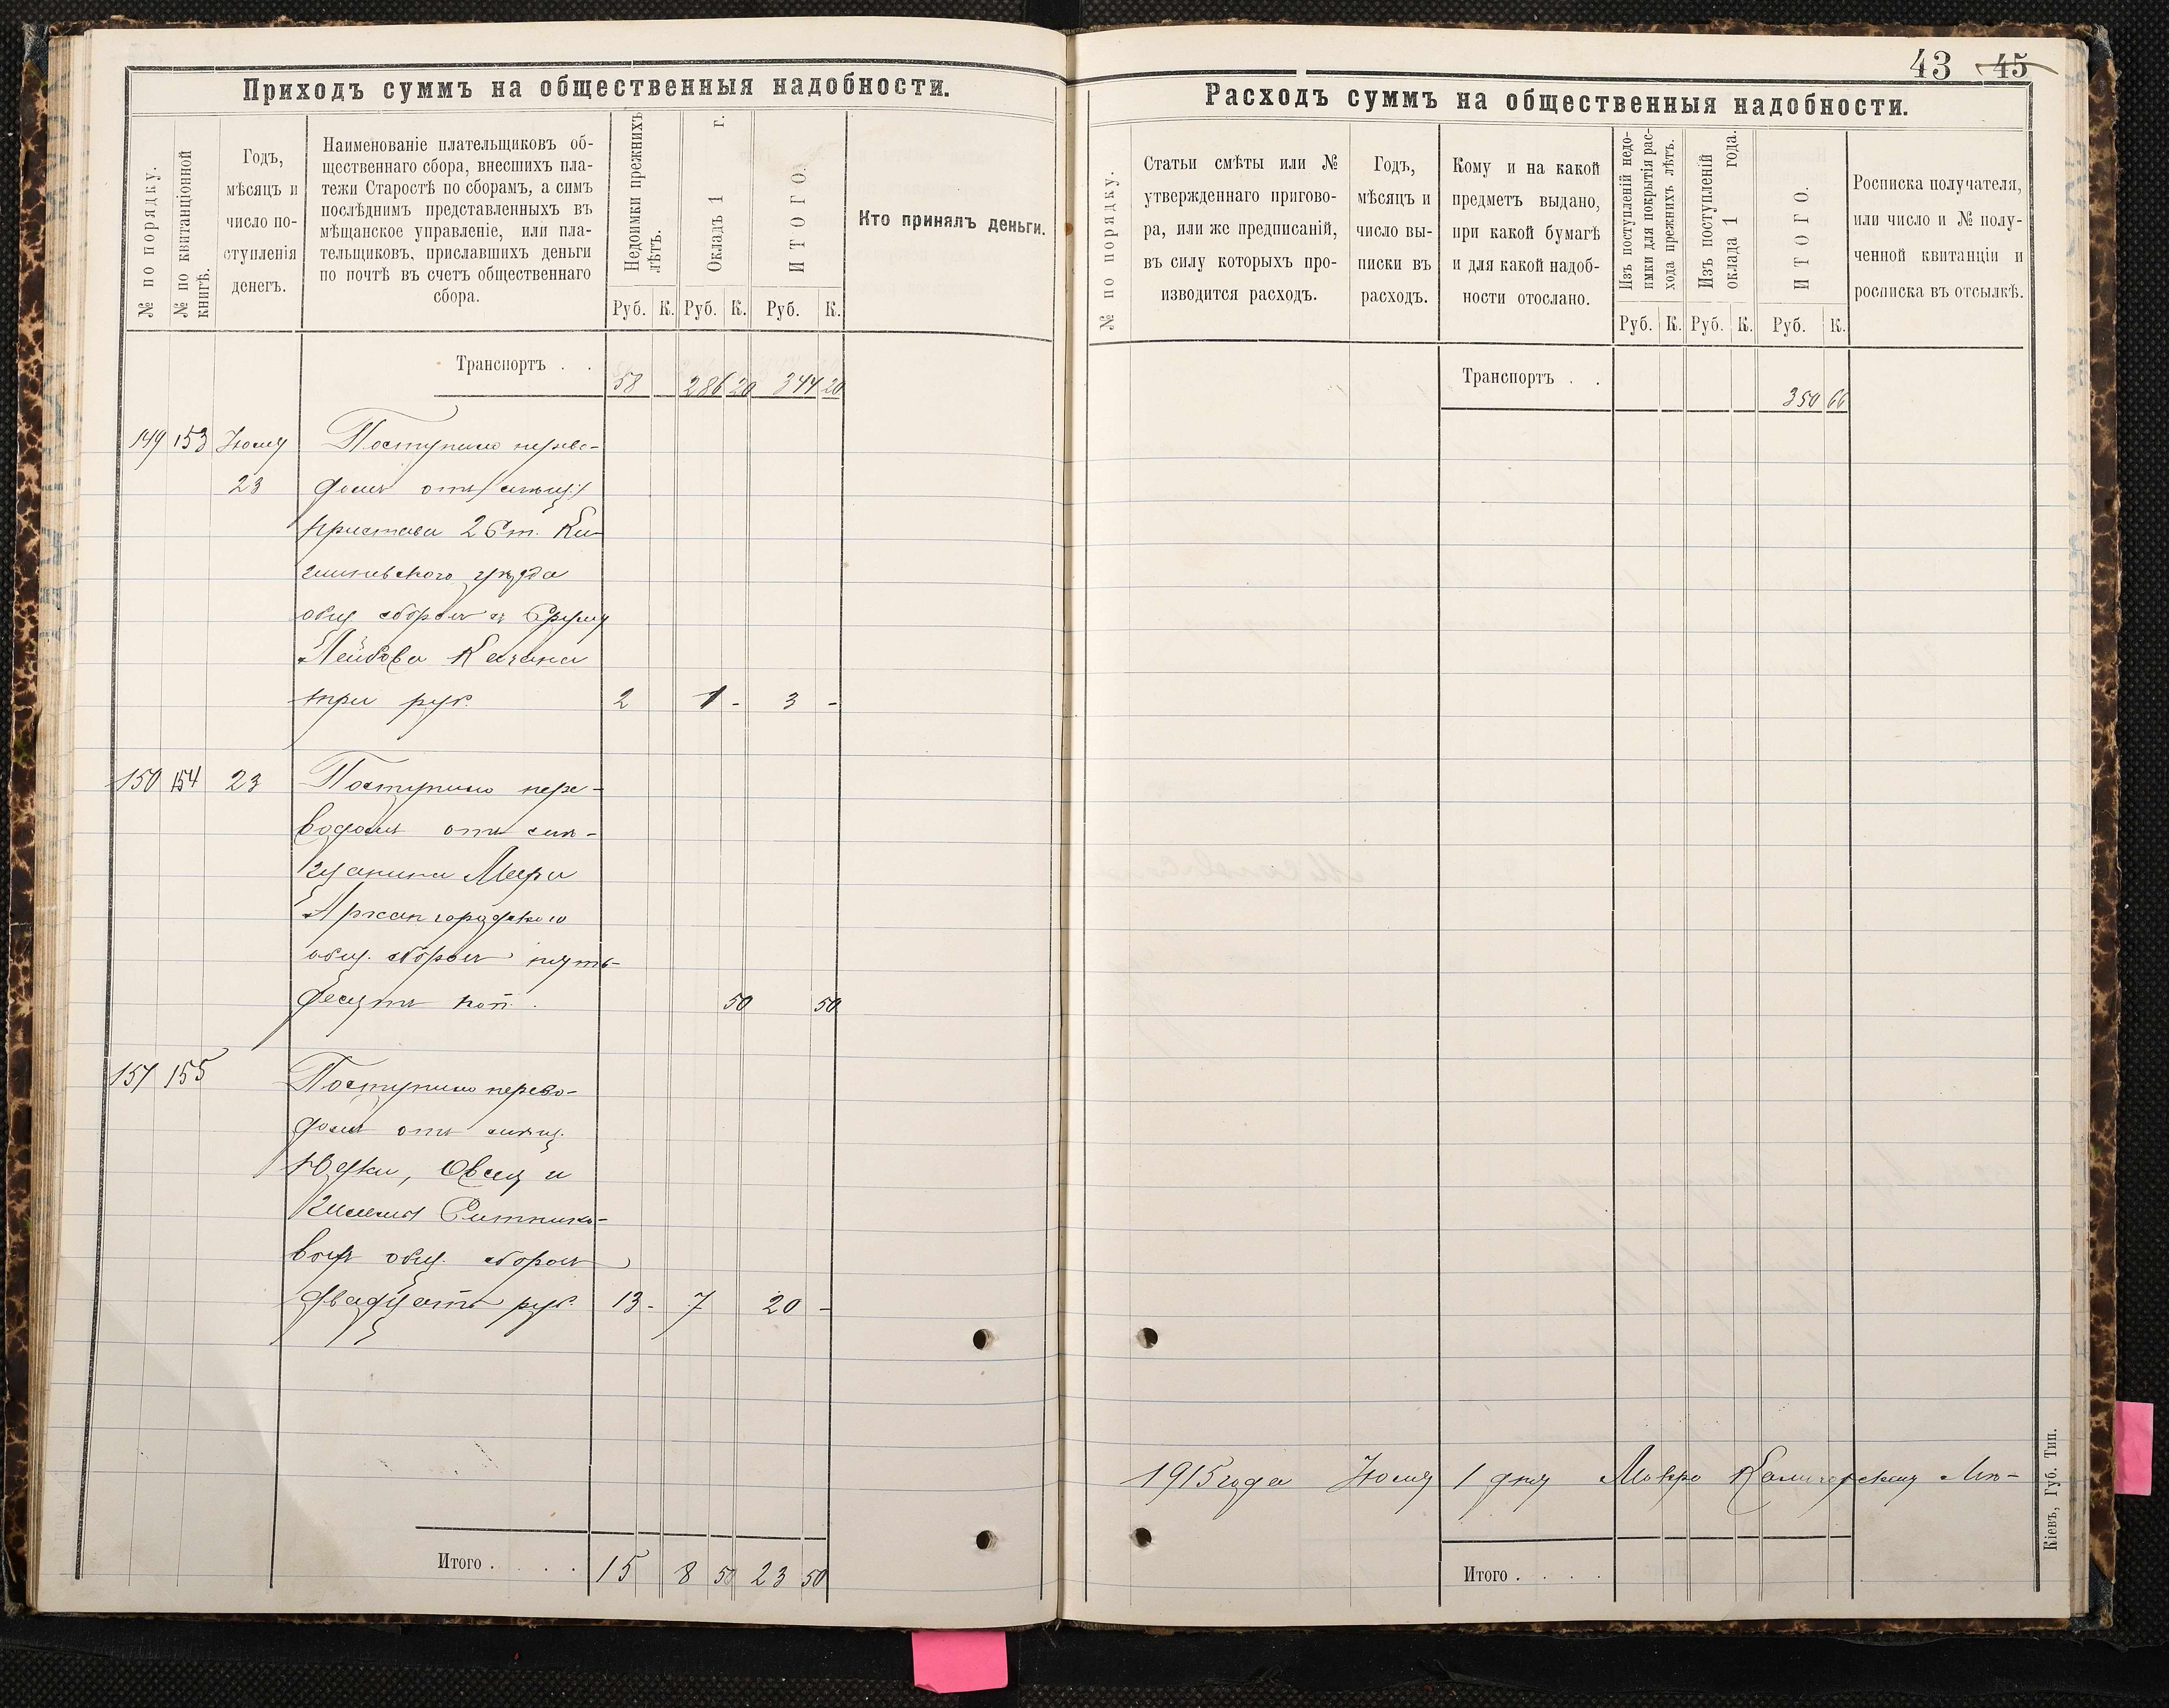 Приходъ суммъ на общественныя надобности.
№ по порядку.
№ по квитанціонной
книгѣ.
Годъ,
мѣсяцъ и
число по-
ступленія
денегъ.
Наименованіе плательщиковъ об-
щественнаго сбора, внесшихъ пла-
тежи Старостѣ по сборамъ, а симъ
послѣднимъ представленныхъ въ
мѣщанское управленіе, или пла-
тельщиковъ, приславшихъ деньги
по почтѣ въ счетъ общественнаго
сбора.
Недоимки прежнихъ
лѣтъ.
Окладъ 1 г.
ИТОГО.
Кто принялъ деньги.
Руб. К. Руб. К. Руб. К.
Транспортъ . .
58 286 20 344 20
149 153 Іюля Поступило перево-
23 домъ отъ
пристава 2 Ст. Ки-
шиневского уѣзда
общ. сборъ Сруля
Лейбова Казана
три руб. 2 1 - 3 -
150 154 23 Поступило пере-
водомъ отъ мѣ-
щанина Меера
Аркан городского
общ. сборъ пять-
десятъ коп. 50 50
151 155 Поступило перево-
домъ отъ мѣщ.
Юдки, Овсея и
Ситнико-
выхъ общ. сборъ
двадцать руб. 13 - 7 20 -
Итого . . . . 15 8 50 23 50
43 45
Расходъ суммъ на общественныя надобности.
№ по порядку.
Статьи смѣты или №
утвержденнаго пригово-
ра, или же предписаній,
въ силу которыхъ про-
изводится расходъ.
Годъ,
мѣсяцъ и
число вы-
писки въ
расходъ.
Кому и на какой
предметъ выдано,
при какой бумагѣ
и для какой надоб-
ности отослано.
Изъ поступленій недо-
имки для покрытія рас-
хода прежнихъ лѣтъ.
Изъ поступленій
оклада 1 года.
ИТОГО.
Росписка получателя,
или число и № полу-
ченной квитанціи и
росписка въ отсылкѣ.
Руб. К. Руб. К. Руб. К.
Транспортъ . .
350 66
1915 года Іюля 1 дня
Итого . . . .
Кіевъ, Губ. Тип.